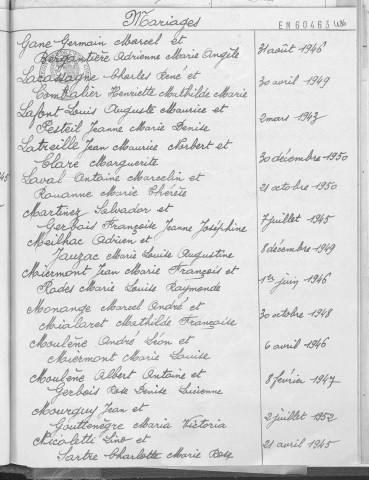 Mariages
EN60463
Gane Germain Marcel et
Bergantière Adrienne Marie Angèle 31 août 1946
Lacassagne Charles René et
Combalier Henriette Mathilde Marie 30 avril 1949
Lafont Louis Auguste Maurice et
Pesteil Jeanne Marie Denise 2 mars 1943
Latreille Jean Maurice Norbert et
Clare Marguerite 30 décembre 1950
Laval Antoine Marcelin et
Rouanne Marie Thérèse 21 octobre 1950
Martinez Salvador et
Gerbois Françoise Jeanne Joséphine 7 juillet 1945
Meilhac Adrien et
Jauzac Marie Louise Augustine 8 décembre 1949
Miermont Jean Marie François et
Rades Marie Louise Raymonde 1er juin 1946
Monange Marcel André et
Mialaret Mathilde Françoise 30 octobre 1948
Moulène André Léon et
Miermont Marie Louise 6 avril 1946
Moulène Albert Antoine et
Gerbois Rose Denise Lucienne 8 février 1947
Mourguy Jean et
Gouttenègre Maria Victoria 2 juillet 1952
Nicoletti Lino et
Sartre Charlotte Marie Rose 21 avril 1945